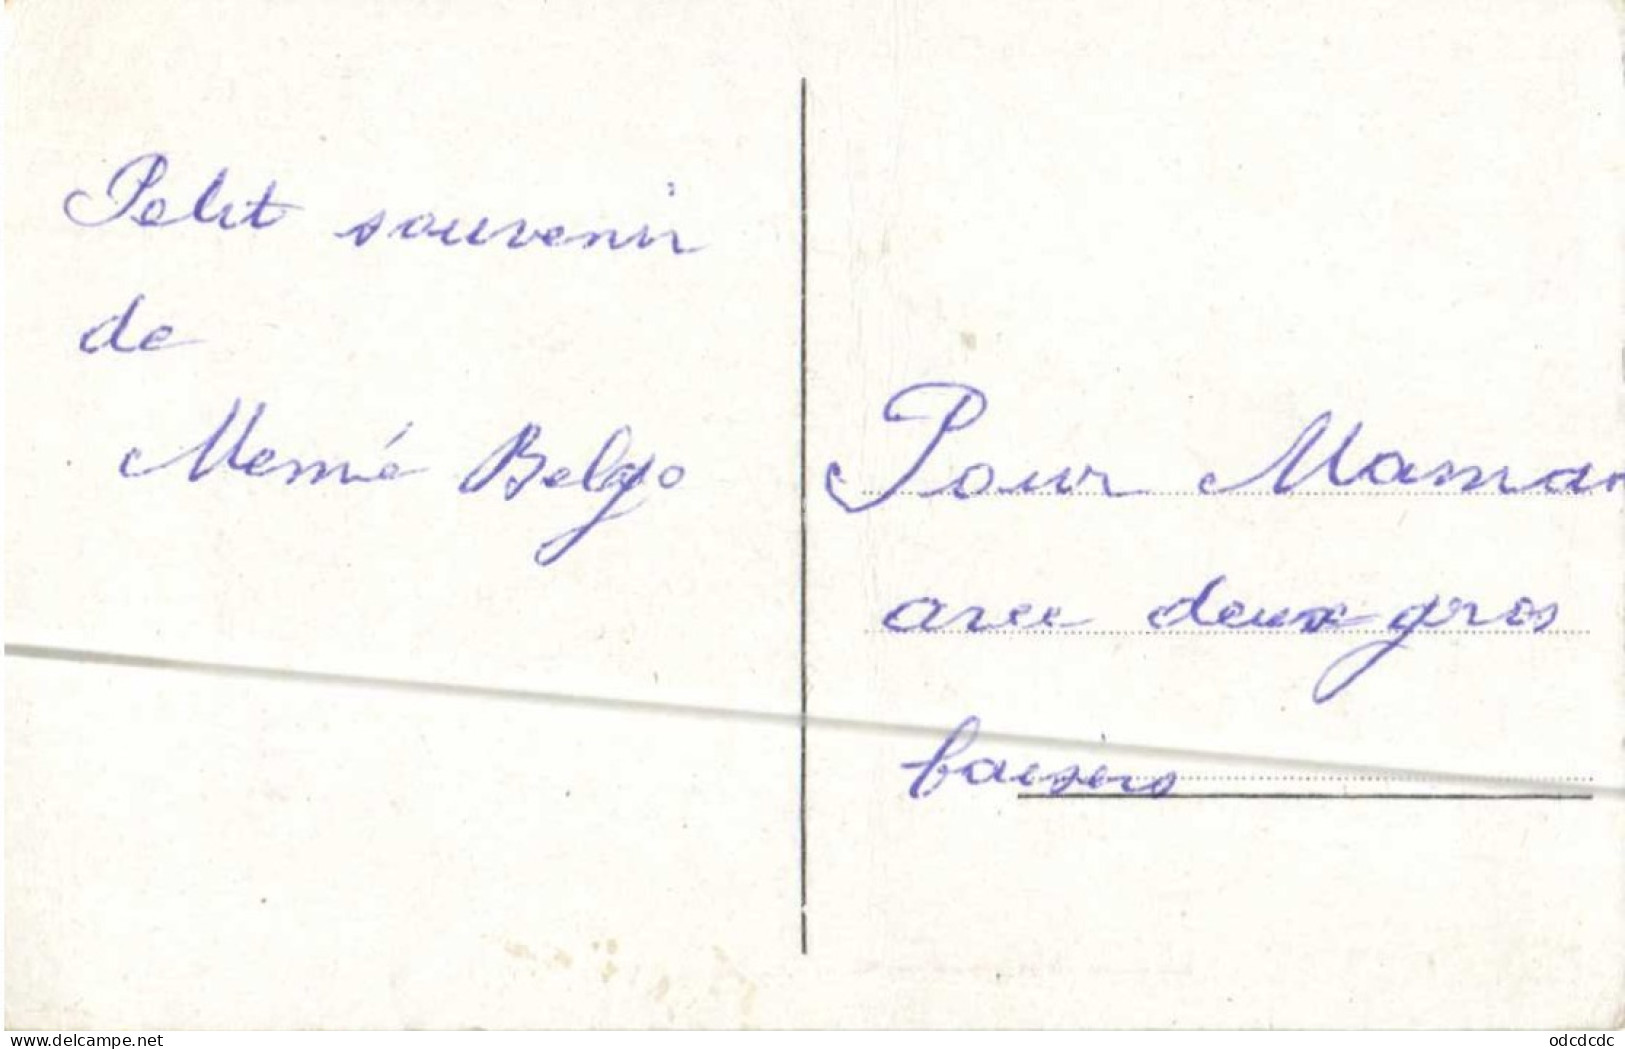 Petit souvenir
de
Memé Belgo
Pour Maman
avec deux gros
baisers
delcampe.net
odcdcdc